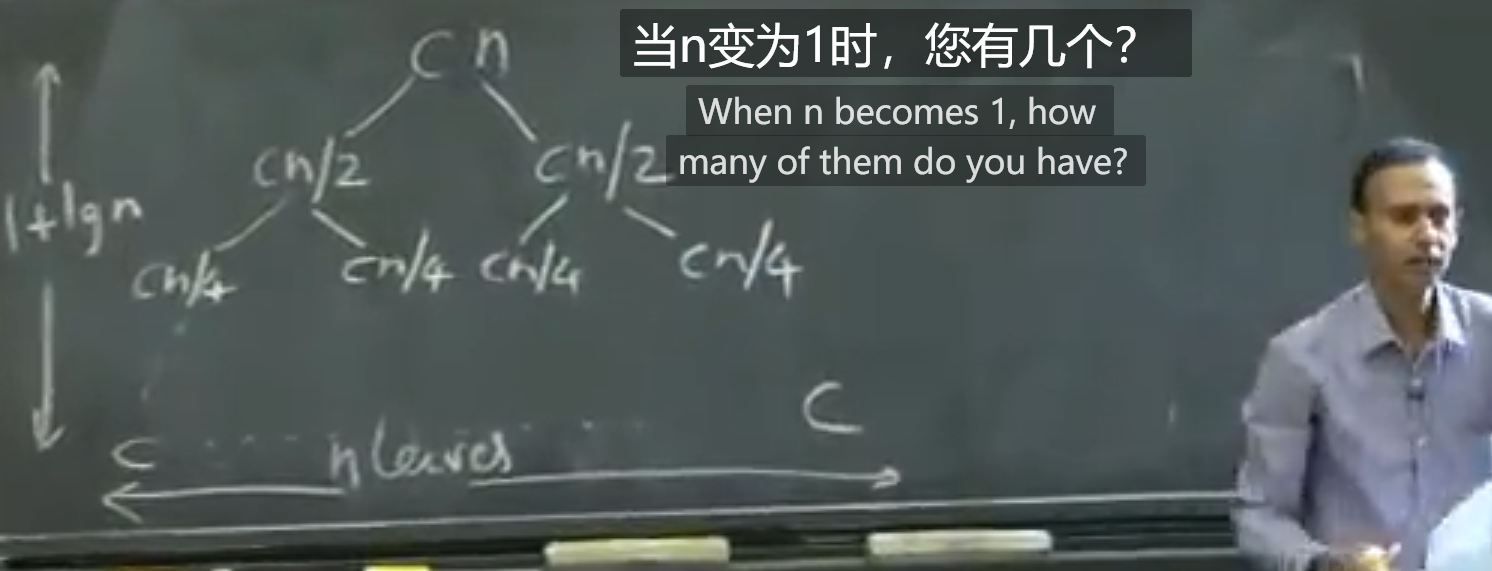 当n变为1时，您有几个？
When n becomes 1, how
many of them do you have?
cn
cn/2 cn/2
1+lgn
cn/4 cn/4 cn/4 cn/4
C
C
n leaves